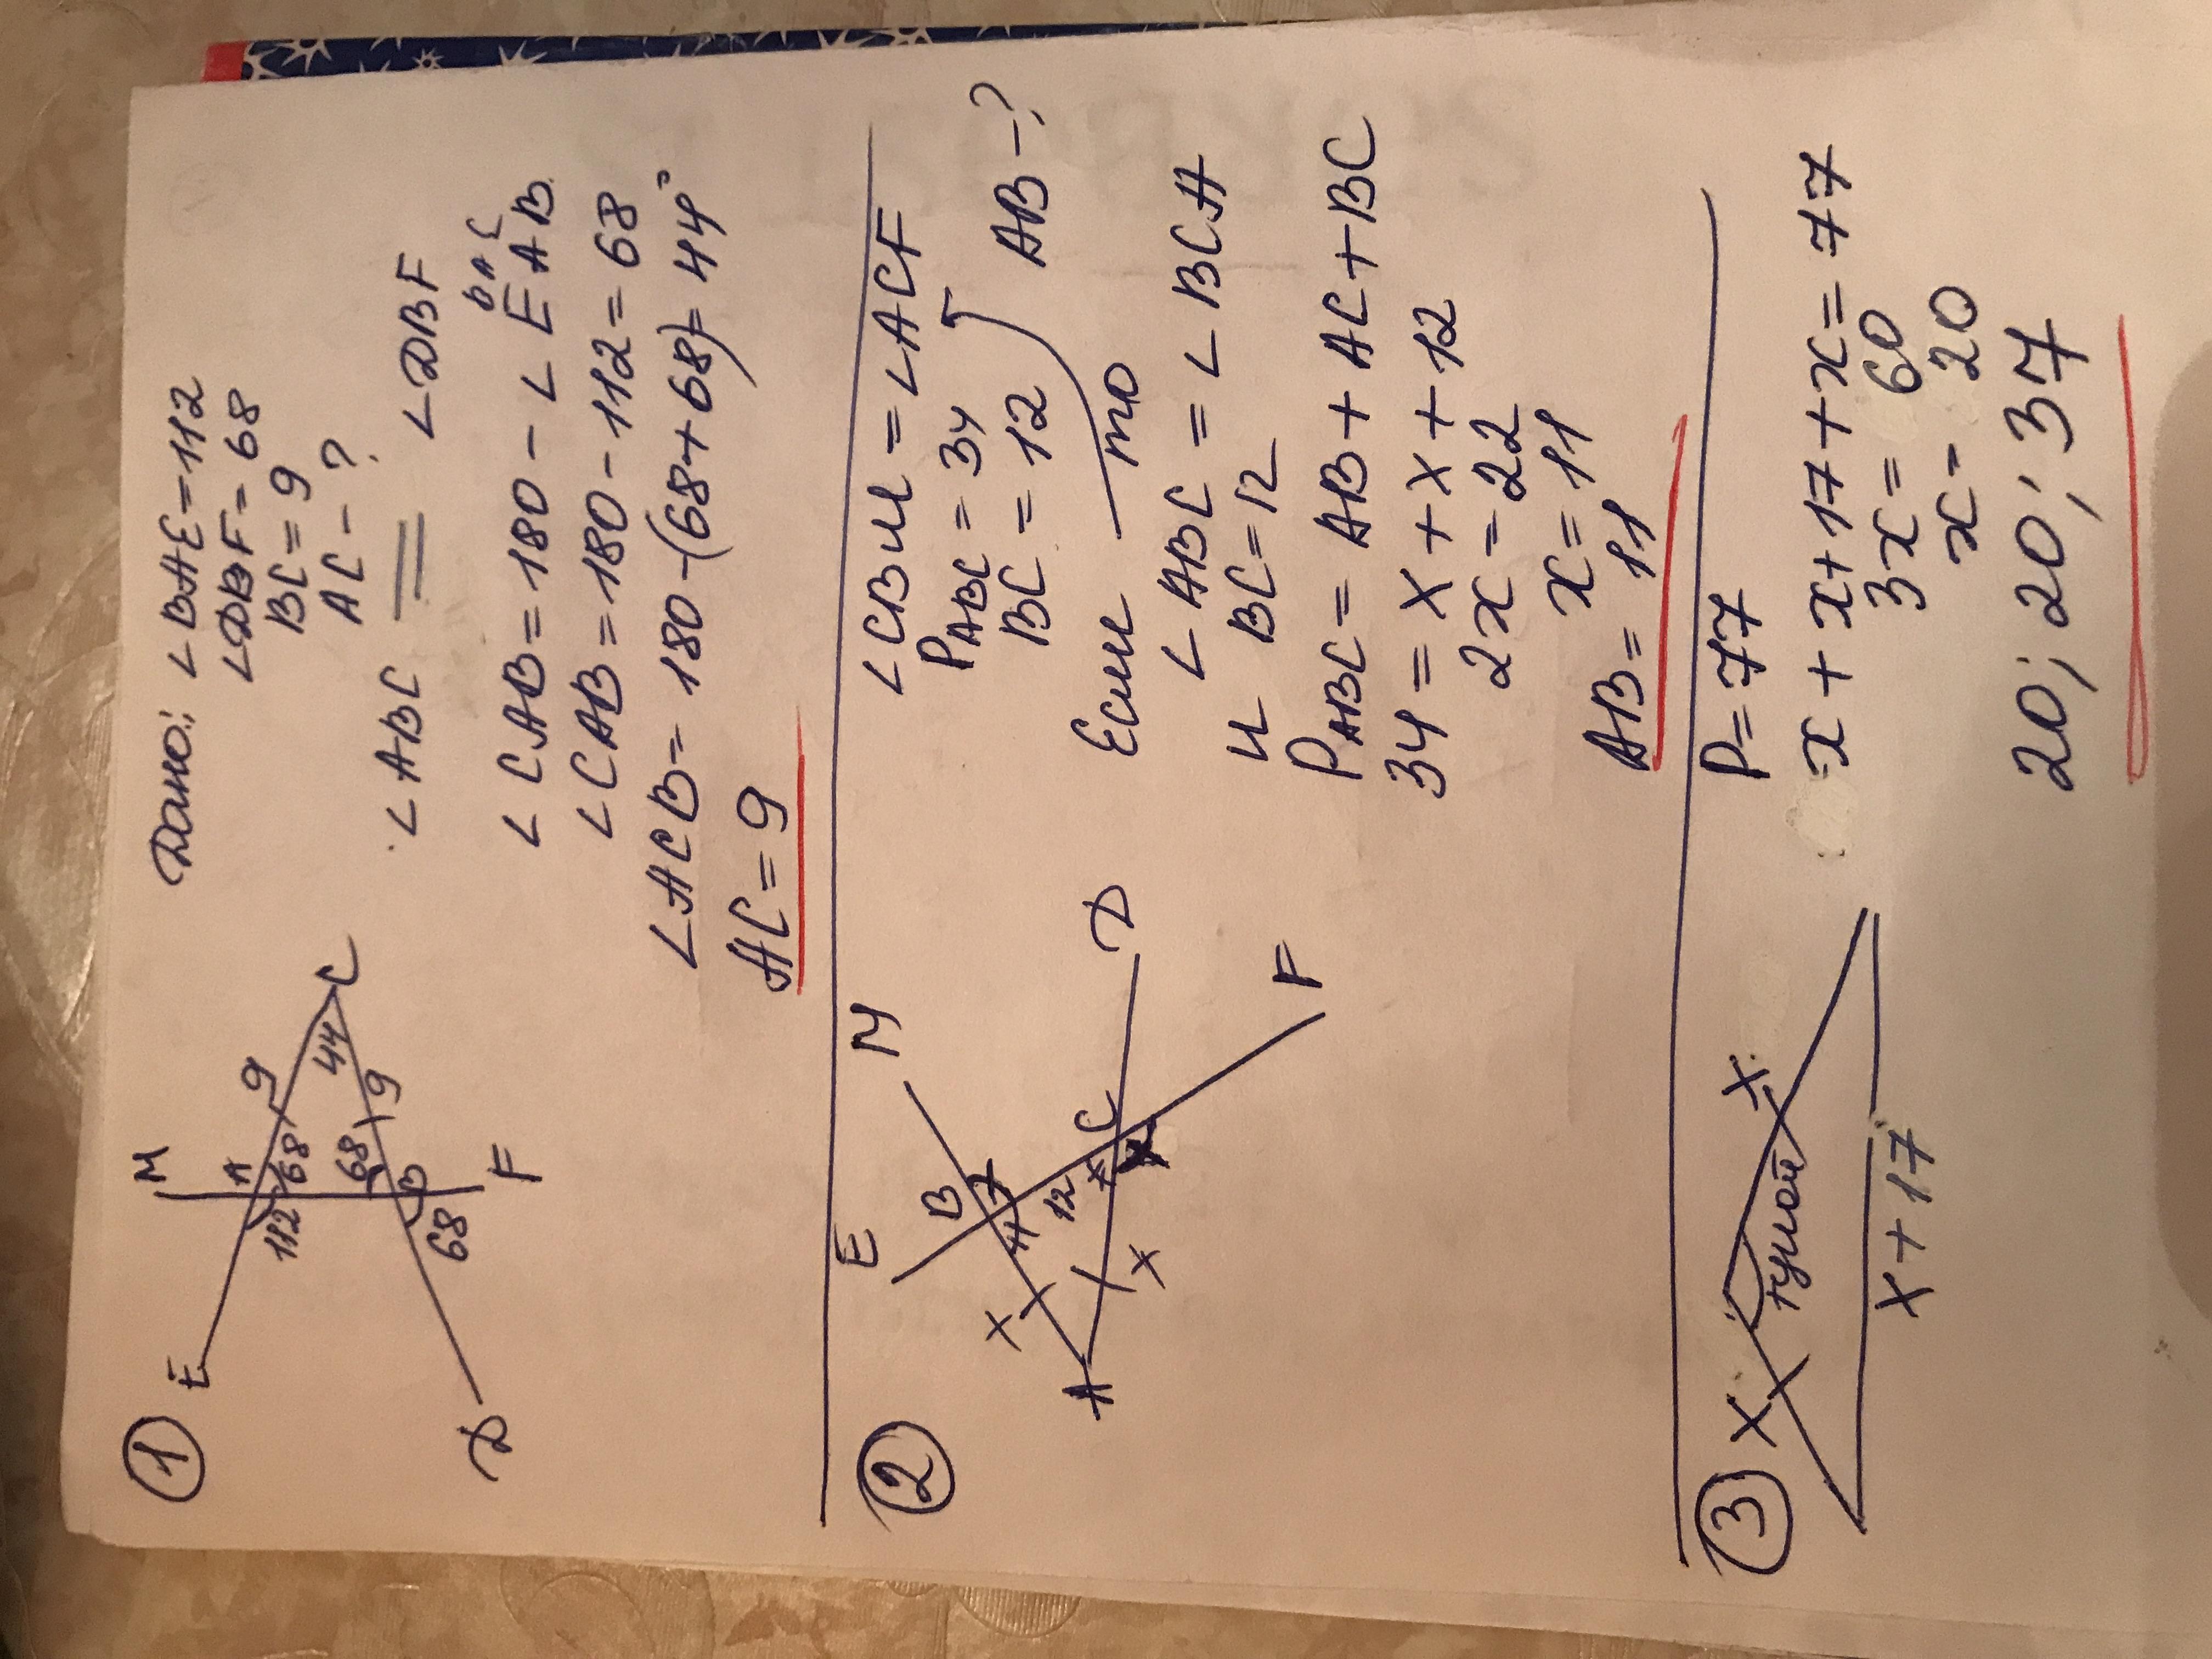 ①
M
E
A
9
112
68
44
C
68
9
B
68
D
F
Дано: ∠BAE=112
∠DBF=68
BC=9
AC-?
∠ABC = ∠DBF
BAC
∠CAB=180-∠EAB
∠CAB=180-112=68
∠ACB=180-(68+68)=44°
AC=9
②
E
M
B
X
12
C
A
X
D
F
∠CBM=∠ACF
PABC=34
BC=12
AB-?
Если — то
∠ABC=∠BCA
и BC=12
PABC=AB+AC+BC
34=X+X+12
2x=22
x=11
AB=11
③
X
X
тупой
X+17
P=77
x+x+17+x=77
3x=60
x=20
20; 20; 37